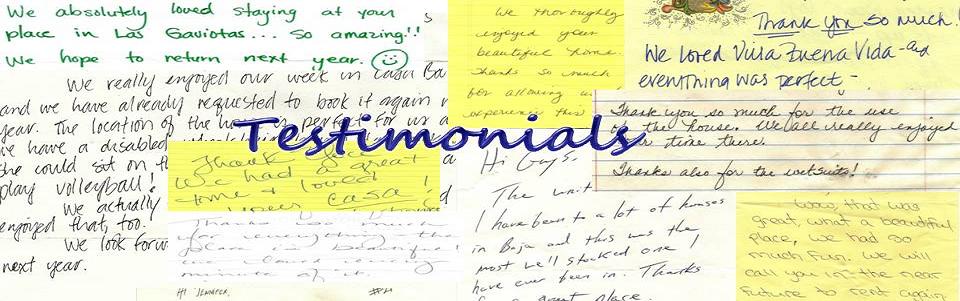 We absolutely loved staying at your
place in Las Gaviotas... so amazing!!
We hope to return next year.
We really enjoyed our week in Casa Ba
and we have already requested to book it again
year. The location of the h perfect for us a
have a disabled
she could sit on th
play volleyball!
We actually
enjoyed that, too.
We look forw
next year.
Thank you
We had a great
time & loved
your casa!
Thanks so much
for everything the
place is beautiful
we loved every
minute of it.
HI JENNIFER,
Testimonials
We thoroughly
enjoyed your
beautiful home.
Thanks so much
for allowing us
experience this
Hi Guys,
The
I have been to a lot of houses
in Baja and this was the
most well stocked one I
have ever been in. Thanks
for a great place.
Thank you so much!
We Loved Villa Buena Vida - and
everything was perfect -
Thank you so much for the use
of the house. We all really enjoyed
our time there.
Thanks also for the wetsuits!
Wow, that was
great, what a beautiful
place, we had so
much fun. We will
call you in the near
future to rent again